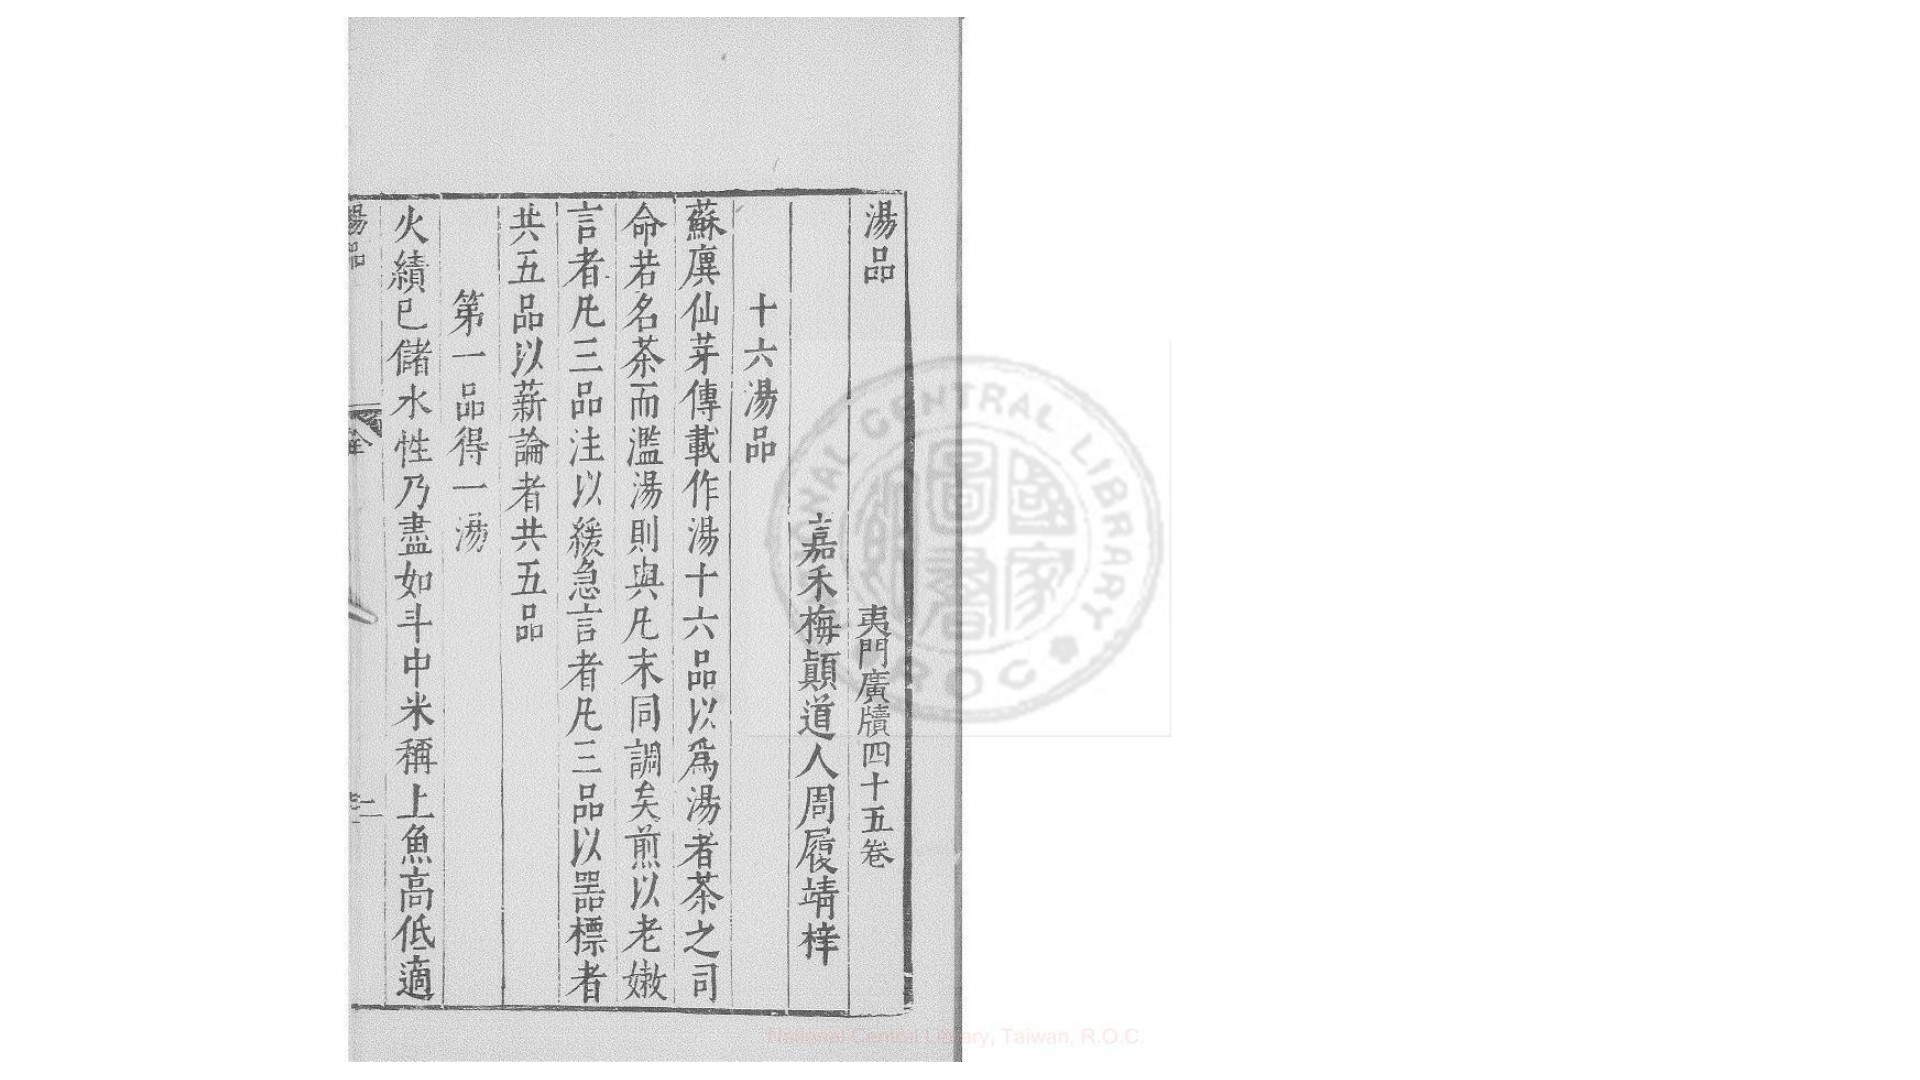 湯品
夷門廣牘四十五卷
嘉禾梅顛道人周履靖梓
十六湯品
蘇廙仙芽傳載作湯十六品以爲湯者茶之司
命若名茶而濫湯則與凡末同調矣煎以老嫩
言者凡三品注以緩急言者凡三品以器標者
共五品以薪論者共五品
第一品得一湯
火績已儲水性乃盡如斗中米稱上魚高低適
湯品
二
NATIONAL CENTRAL LIBRARY
R.O.C.
國家圖書
National Central Library, Taiwan, R.O.C.